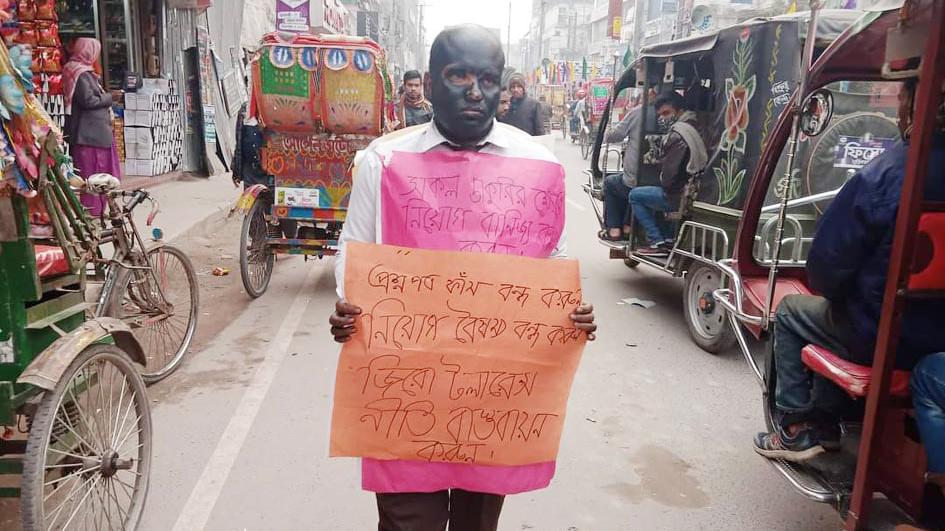 সকল চাকুরির ক্ষেত্রে
নিয়োগ বানিজ্য বন্ধ
করুন
"প্রশ্নপত্র ফাঁস বন্ধ করুন
নিয়োগ বৈষম্য বন্ধ করুন
জিরো টলারেন্স
নীতি বাস্তবায়ন
করুন।